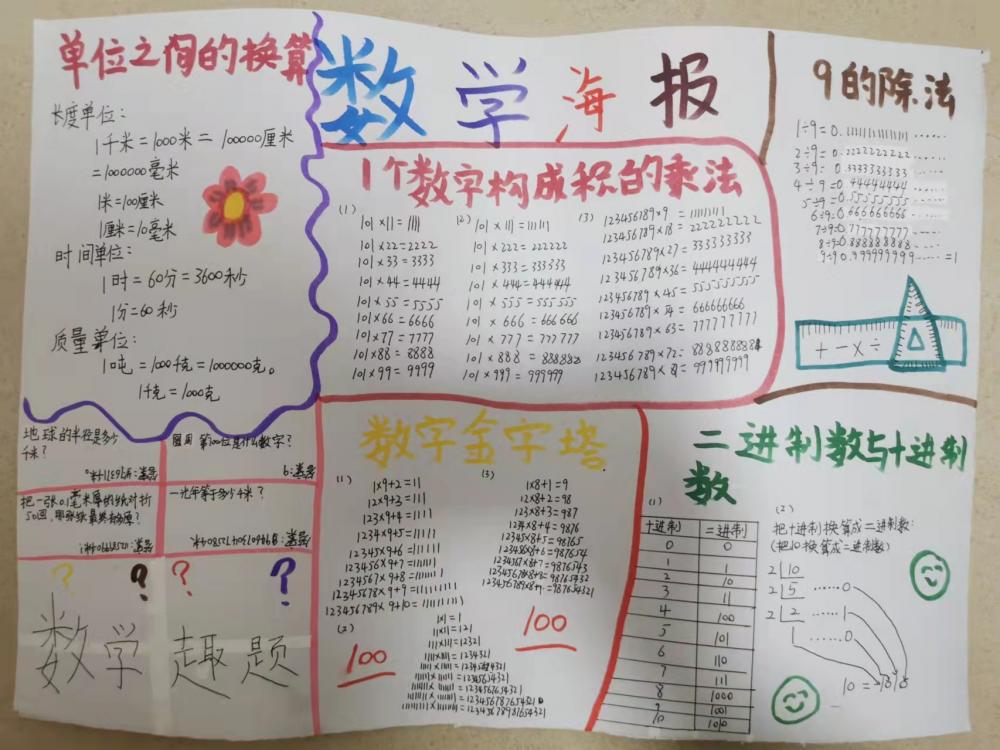 数学海报
单位之间的换算
长度单位:
1千米=1000米=100000厘米
=1000000毫米
1米=100厘米
1厘米=10毫米
时间单位:
1时=60分=3600秒
1分=60秒
质量单位:
1吨=1000千克=1000000克。
1千克=1000克
1个数字构成积的乘法
(1)
101×11=1111
101×22=2222
101×33=3333
101×44=4444
101×55=5555
101×66=6666
101×77=7777
101×88=8888
101×99=9999
(2)
101×111=11111
101×222=222222
101×333=333333
101×444=444444
101×555=555555
101×666=666666
101×777=777777
101×888=888888
101×999=999999
(3)
123456789×9=111111111
123456789×18=222222222
123456789×27=333333333
123456789×36=444444444
123456789×45=555555555
123456789×54=666666666
123456789×63=777777777
123456789×72=888888888
9的除法
1÷9=0.1111111111……
2÷9=0.2222222222……
3÷9=0.3333333333……
4÷9=0.44444444……
5÷9=0.555555555……
6÷9=0.666666666……
7÷9=0.777777777……
8÷9=0.888888888……
9÷9=0.999999999……=1
+-×÷
地球的半径是多少
千米?
第100位是什么数字?
答案:9
把一张0.1毫米厚的纸对折
50回,
一光年等于多少千米?
? ? ? ?
数学趣题
数字金字塔
(1)
1×9+2=11
12×9+3=111
123×9+4=1111
1234×9+5=11111
12345×9+6=111111
123456×9+7=1111111
1234567×9+8=11111111
12345678×9+9=111111111
123456789×9+10=1111111111
(3)
1×8+1=9
12×8+2=98
123×8+3=987
1234×8+4=9876
12345×8+5=98765
123456×8+6=987654
1234567×8+7=9876543
12345678×8+8=98765432
123456789×8+9=987654321
(2)
1×1=1
11×11=121
111×111=12321
1111×1111=1234321
100
100
二进制数与十进制
数
(1)
十进制 二进制
0 0
1 1
2 10
3 11
4 100
5 101
6 110
7 111
8 1000
9 1001
10 1010
(2)
把十进制换算成二进制数:
(把10换算成二进制数)
2 10
2 5 ……0
2 2 ……1
1 ……0